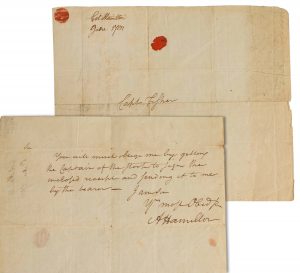 Col Hamilton
1781
Captn
Sir
You will much oblige me by getting
the Captain of the to sign the
inclosed receipt and sending it to me
by the bearer – I am Sr
Yr most Obed S
A Hamilton